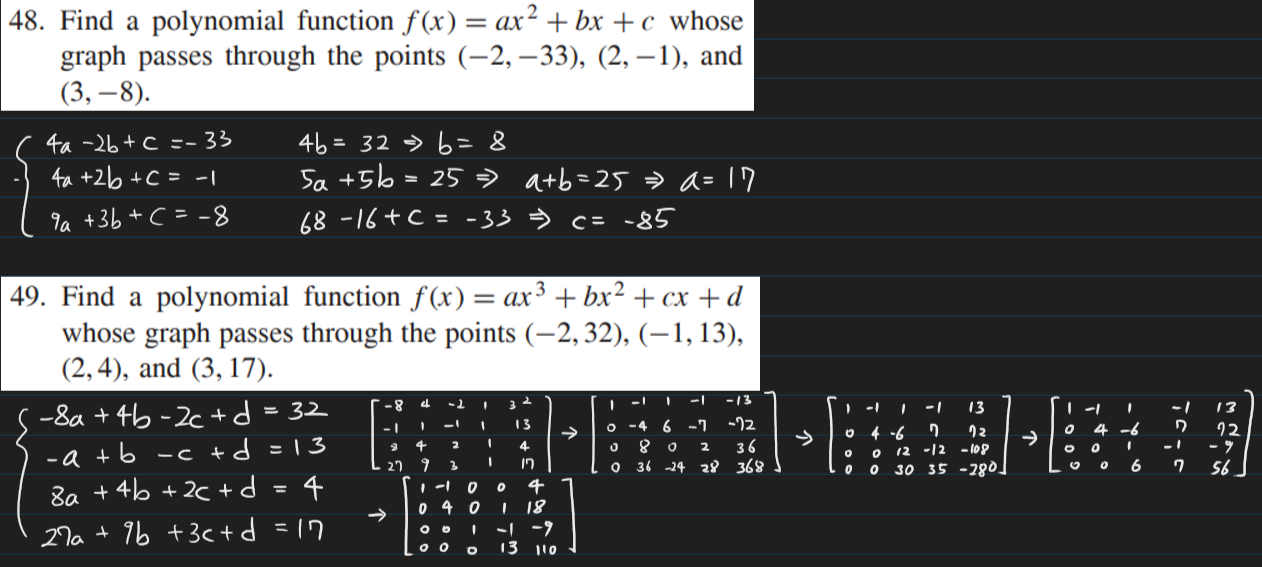 48. Find a polynomial function f(x) = ax² + bx + c whose
graph passes through the points (−2, −33), (2, −1), and
(3, −8).
4a -2b + c = -33
4b = 32 ⇒ b = 8
4a +2b + c = -1
5a + 5b = 25 ⇒ a+b = 25 ⇒ a = 17
9a +3b + c = -8
68 -16 + c = -33 ⇒ c = -85
49. Find a polynomial function f(x) = ax³ + bx² + cx + d
whose graph passes through the points (−2, 32), (−1, 13),
(2, 4), and (3, 17).
-8a + 4b - 2c + d = 32
-a + b - c + d = 13
8a + 4b + 2c + d = 4
27a + 9b + 3c + d = 17
-8 4 -2 1 32
-1 1 -1 1 13
8 4 2 1 4
27 9 3 1 17
→
1 -1 1 -1 -13
0 -4 6 -7 -72
0 8 0 2 36
0 36 -24 28 368
→
1 -1 1 -1 13
0 4 -6 7 72
0 0 12 -12 -108
0 0 30 35 -280
→
1 -1 1 -1 13
0 4 -6 7 72
0 0 1 -1 -9
0 0 6 7 56
→
1 -1 0 0 4
0 4 0 1 18
0 0 1 -1 -9
0 0 0 13 110